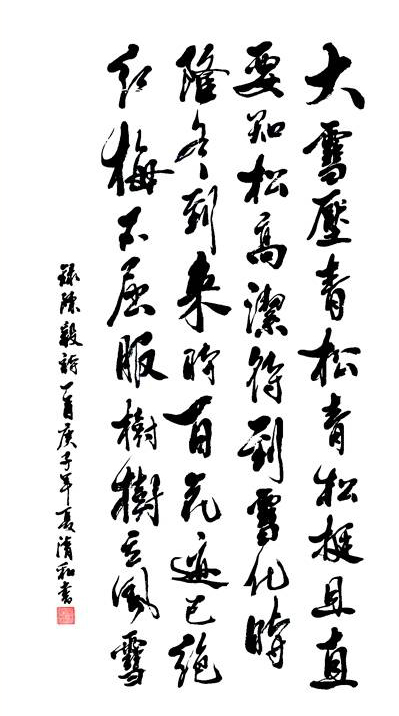 大雪壓青松青松挺且直
要知松高潔待到雪化時
隆冬到来時百花迹已絶
红梅不屈服樹樹立風雪
録陳毅詩一首庚子年夏清和書